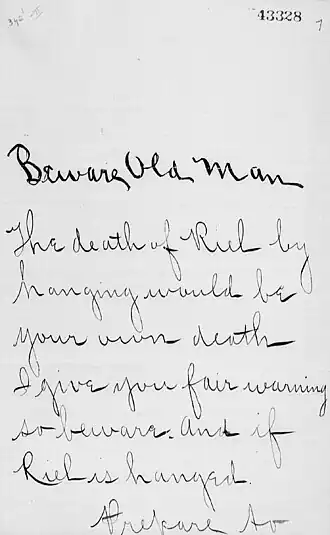 43328
7
Beware Old Man
The death of Riel by
hanging would be
your own death
I give you fair warning
so beware. And if
Riel is hanged.
Prepare to